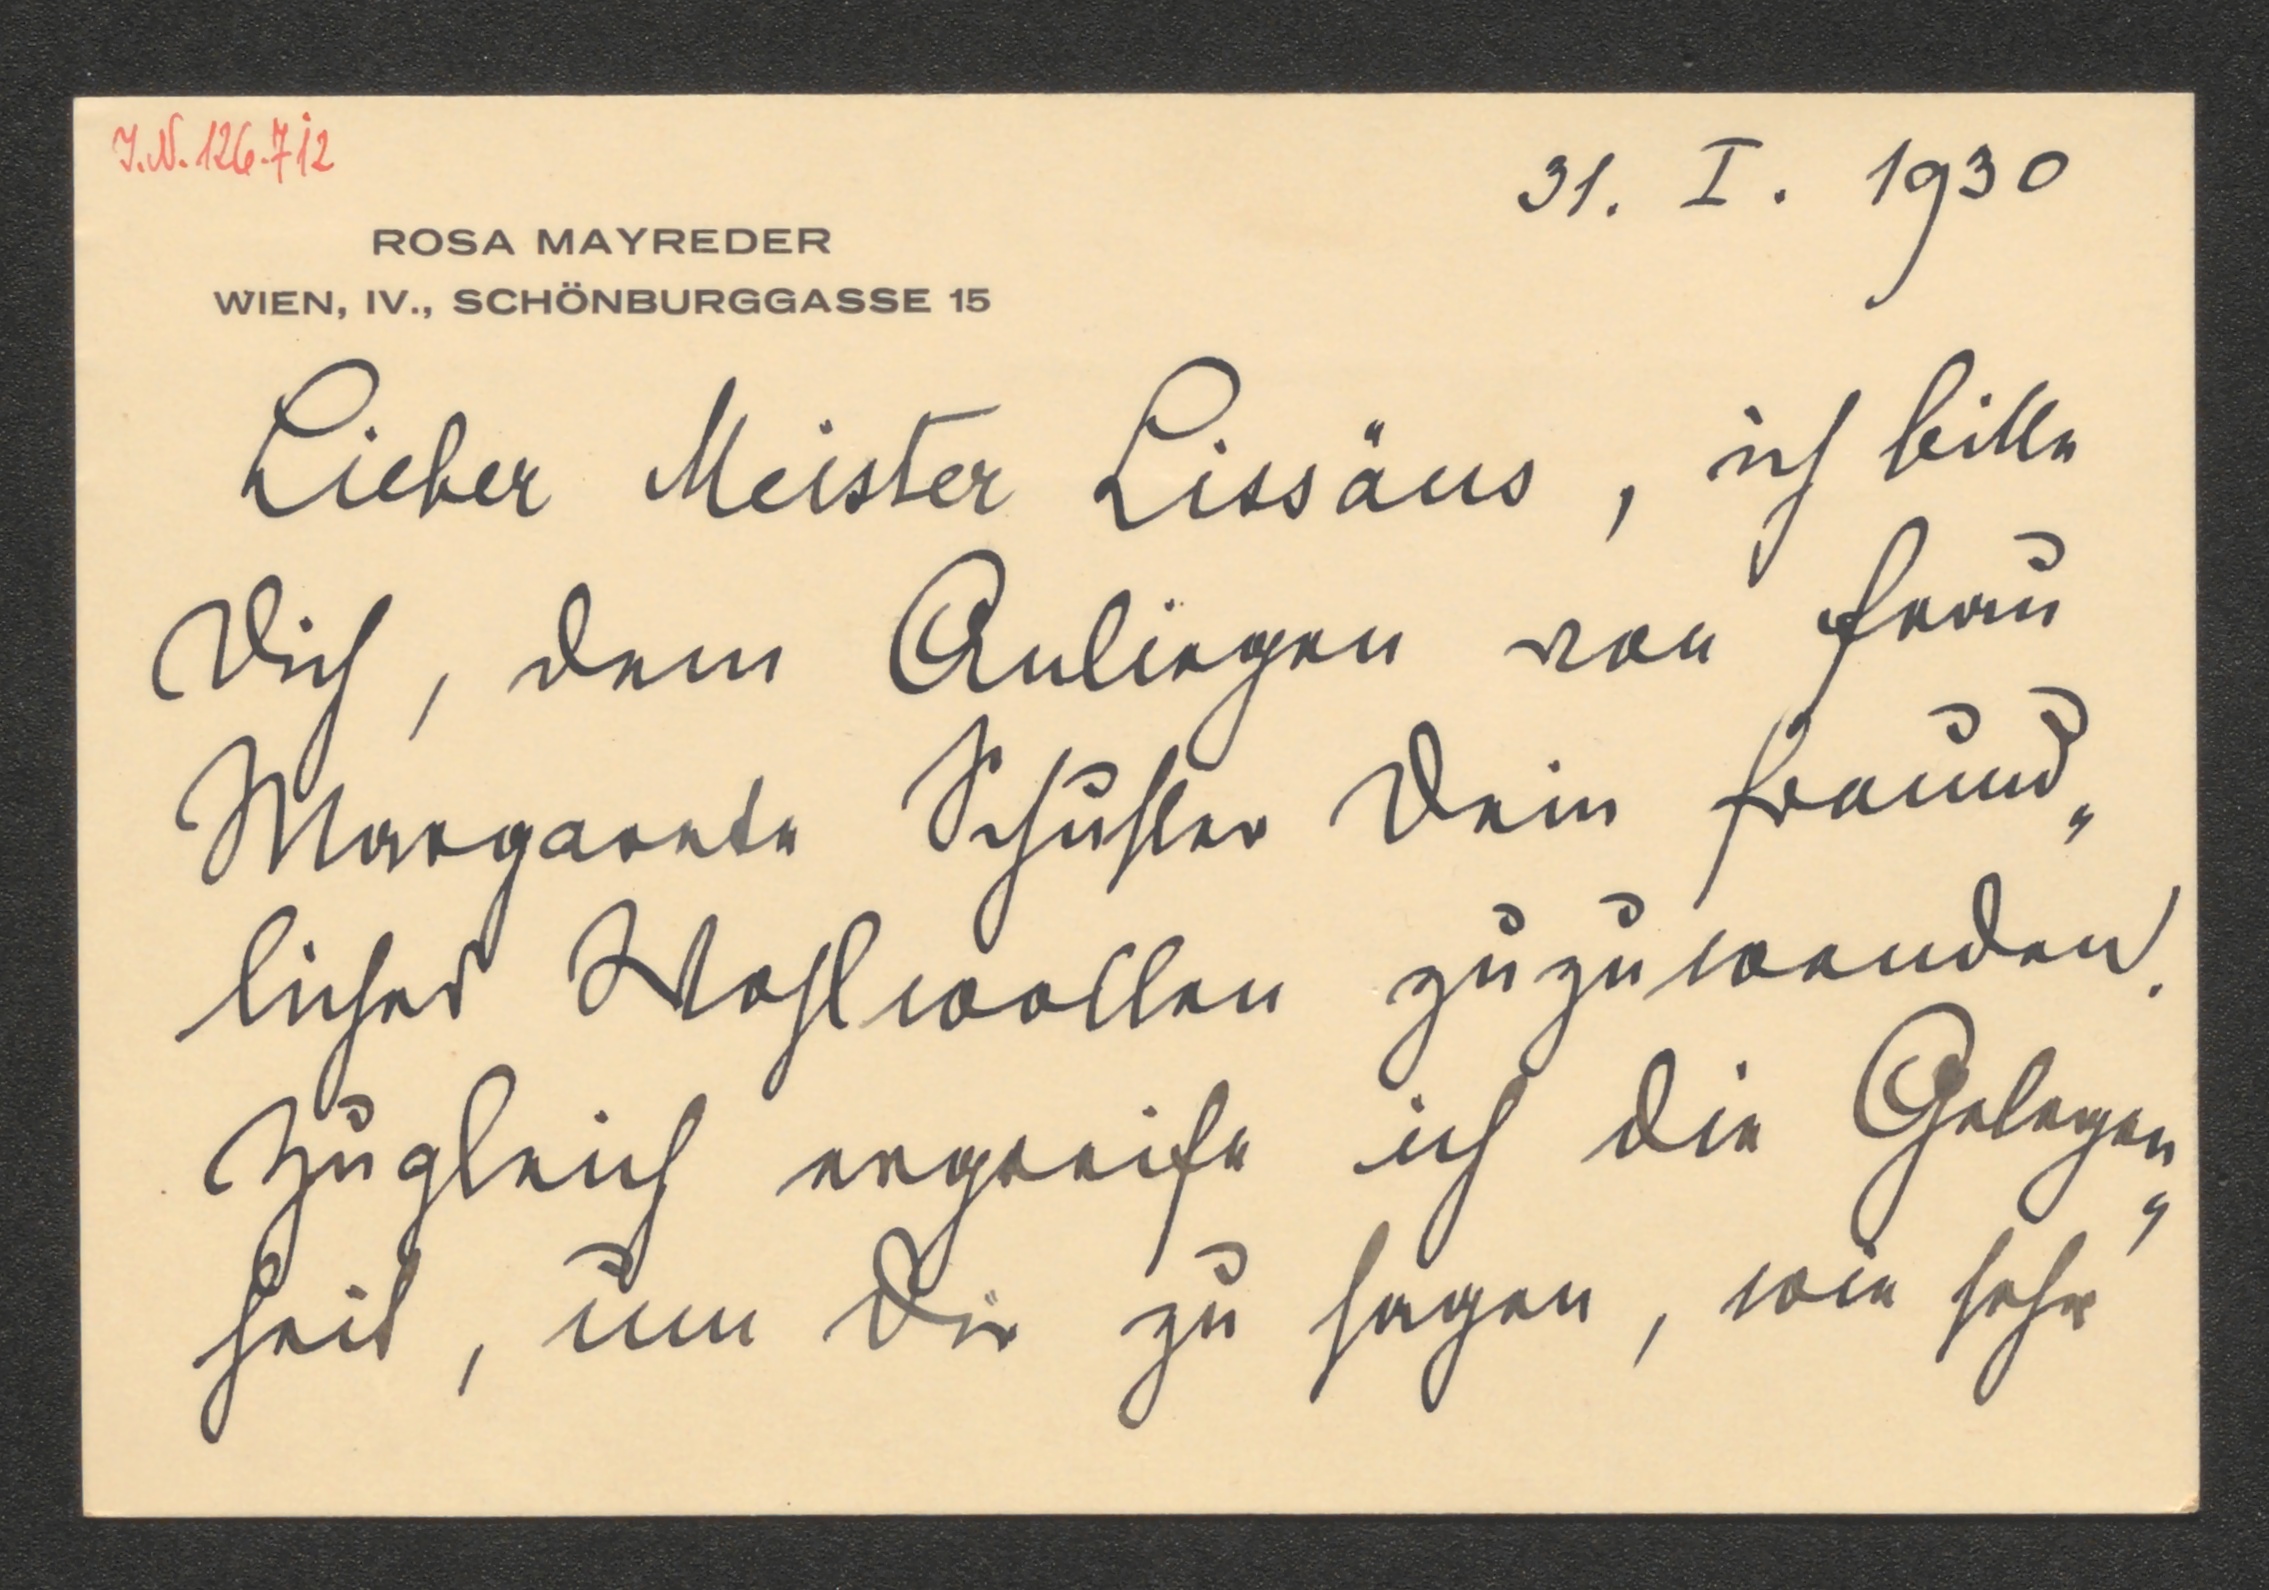 J.N. 126.712
31. I. 1930
ROSA MAYREDER
WIEN, IV., SCHÖNBURGGASSE 15
Lieber Meister Lissäus, ich bitte
Dich, dem Anliegen von Frau
Margarete Schuster Dein freund„
liches Wohlwollen zuzuwenden.
Zugleich ergreife ich die Gelegen„
heit, um Dir zu sagen, wie sehr